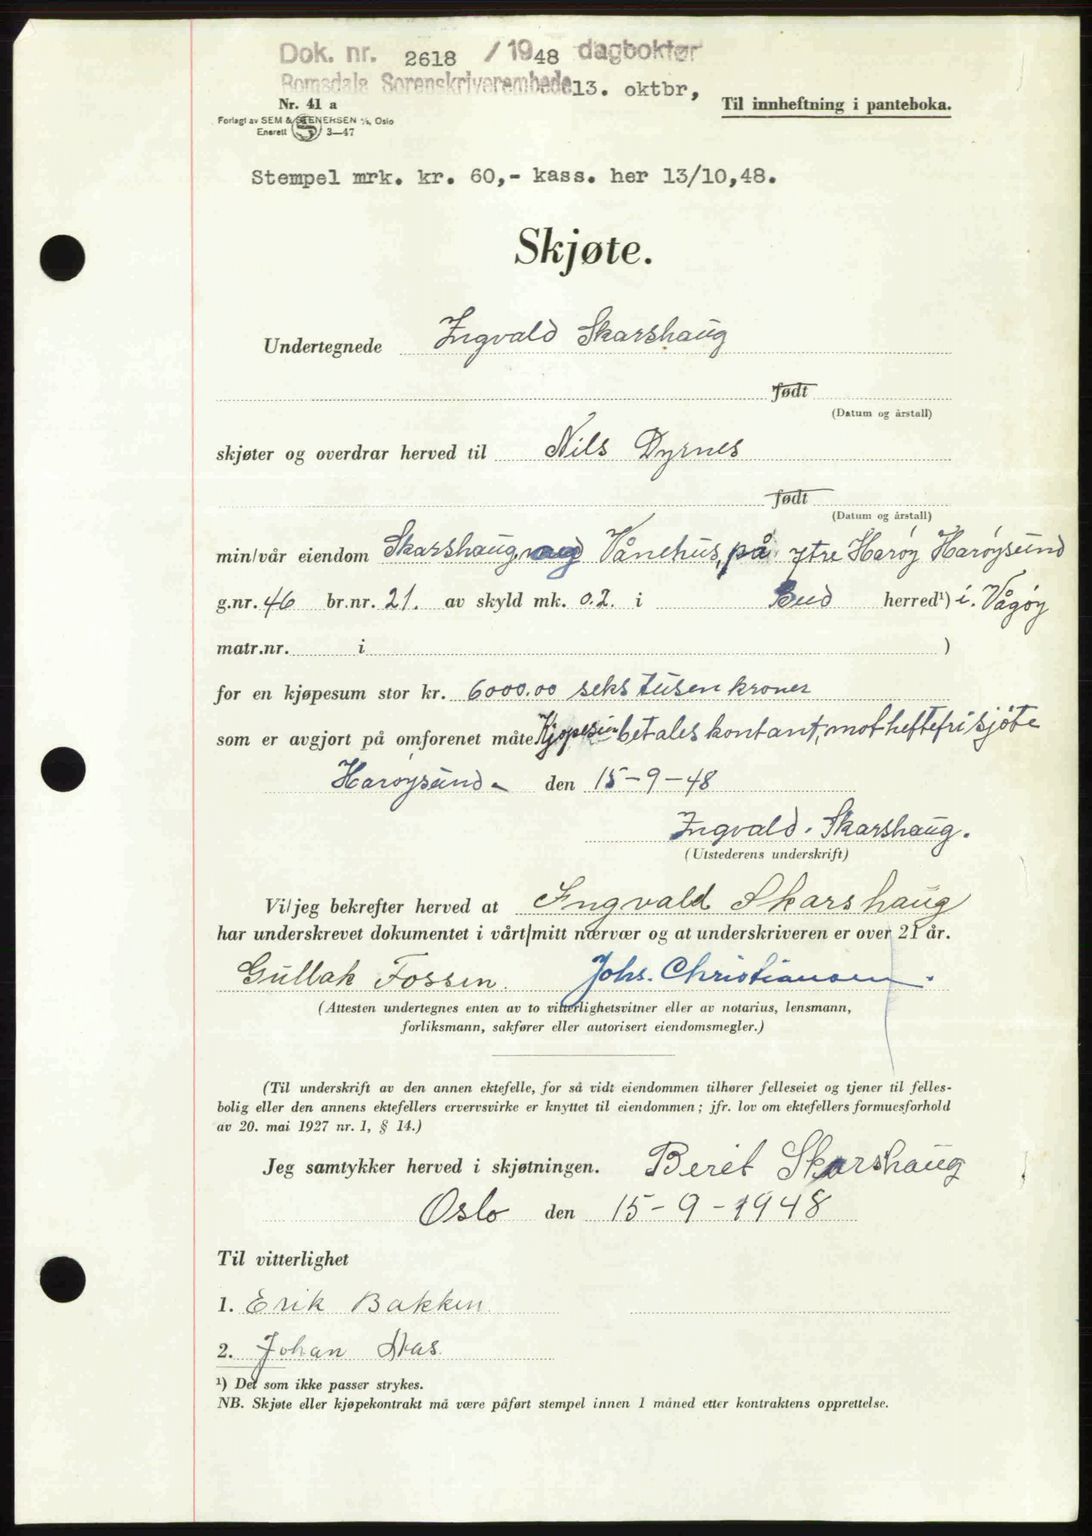 Dok. nr. 2618 / 1948 dagboktør
Romsdals Sorenskriverembede 13. oktbr,
Nr. 41 a
Til innheftning i panteboka.
Forlagt av SEM & STENERSEN A/S, Oslo
Enerett 3—47
Stempel mrk. kr. 60,- kass. her 13/10,48.
Skjøte.
Undertegnede Ingvald Skarshaug
født
(Datum og årstall)
skjøter og overdrar herved til Nils Dyrnes
født
(Datum og årstall)
min/vår eiendom Skarshaug, og Vånehus, på ytre Harøy Harøysund
g.nr. 46 br.nr. 21. av skyld mk. 0.2. i Bud herred¹) i. Vågøy
matr.nr. i )
for en kjøpesum stor kr. 6000.00 seks tusen kroner
som er avgjort på omforenet måte Kjøpesum betales kontant, mot heftefri sjöte
Harøysund - den 15-9-48
Ingvald. Skarshaug.
(Utstederens underskrift)
Vi/jeg bekrefter herved at Ingvald Skarshaug
har underskrevet dokumentet i vårt/mitt nærvær og at underskriveren er over 21 år.
Gullak Fossen. Johs. Christiansen.
(Attesten undertegnes enten av to vitterlighetsvitner eller av notarius, lensmann,
forliksmann, sakfører eller autorisert eiendomsmegler.)
(Til underskrift av den annen ektefelle, for så vidt eiendommen tilhører felleseiet og tjener til felles-
bolig eller den annens ektefellers ervervsvirke er knyttet til eiendommen; jfr. lov om ektefellers formuesforhold
av 20. mai 1927 nr. 1, § 14.)
Jeg samtykker herved i skjøtningen. Berit Skarshaug
Oslo den 15-9-1948
Til vitterlighet
1. Erik Bakken
2. Johan Aas.
¹) Det som ikke passer strykes.
NB. Skjøte eller kjøpekontrakt må være påført stempel innen 1 måned etter kontraktens opprettelse.